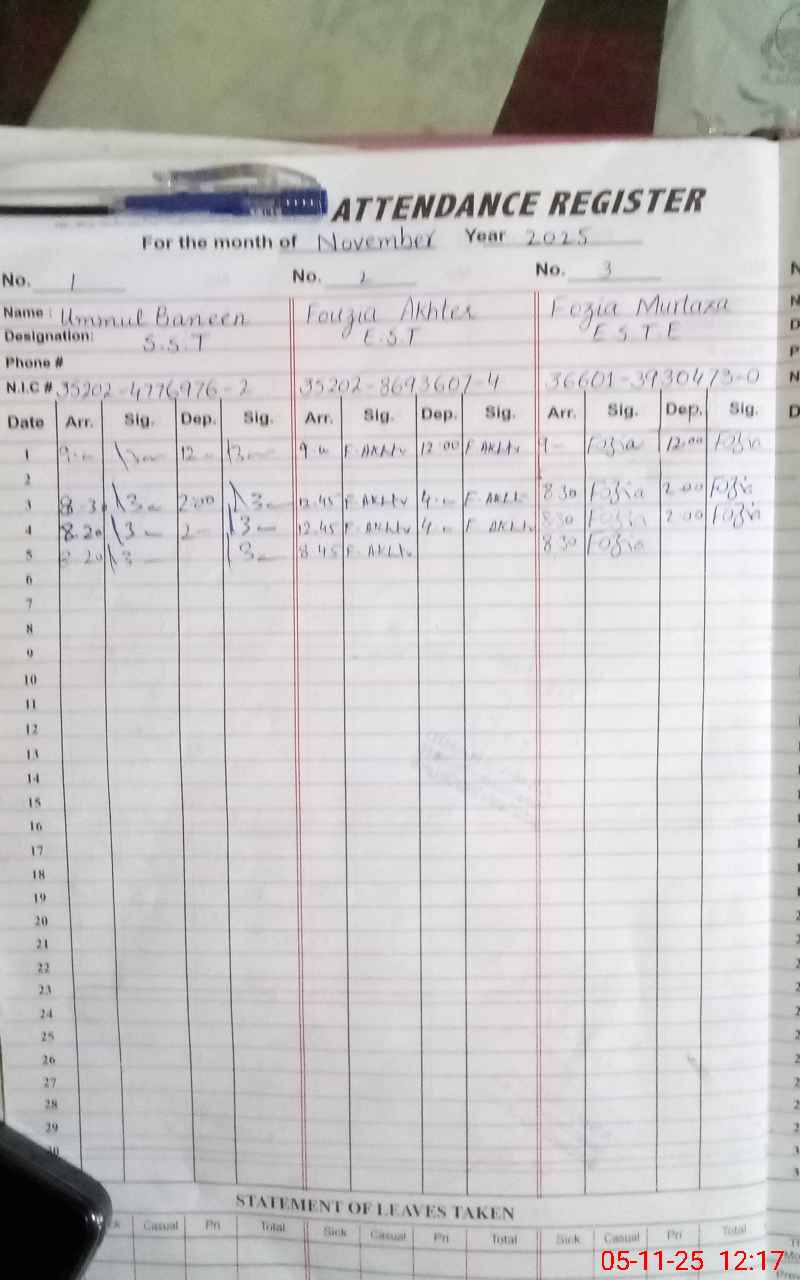 ATTENDANCE REGISTER
For the month of November Year 2025
No. 1 No. 2 No. 3
Name : Ummul Baneen Fouzia Akhter Fozia Murtaza
Designation: S.S.T E.S.T E S T E
Phone #
N.I.C # 35202-4776976-2 35202-8693607-4 36601-3930473-0
Date Arr. Sig. Dep. Sig. Arr. Sig. Dep. Sig. Arr. Sig. Dep. Sig.
1 9 12 9 12 00 9 Fozia 12 00 Fozia
2
3 8.30 2 00 12.45 4 8 30 Fozia 2 00 Fozia
4 8.20 2 12.45 4 8 30 Fozia 2 00 Fozia
5 8.20 8.45 8 30 Fozia
6
7
8
9
10
11
12
13
14
15
16
17
18
19
20
21
22
23
24
25
26
27
28
29
STATEMENT OF LEAVES TAKEN
Casual Pri Total Sick Casual Pri Total Sick Casual Pri Total
05-11-25 12:17